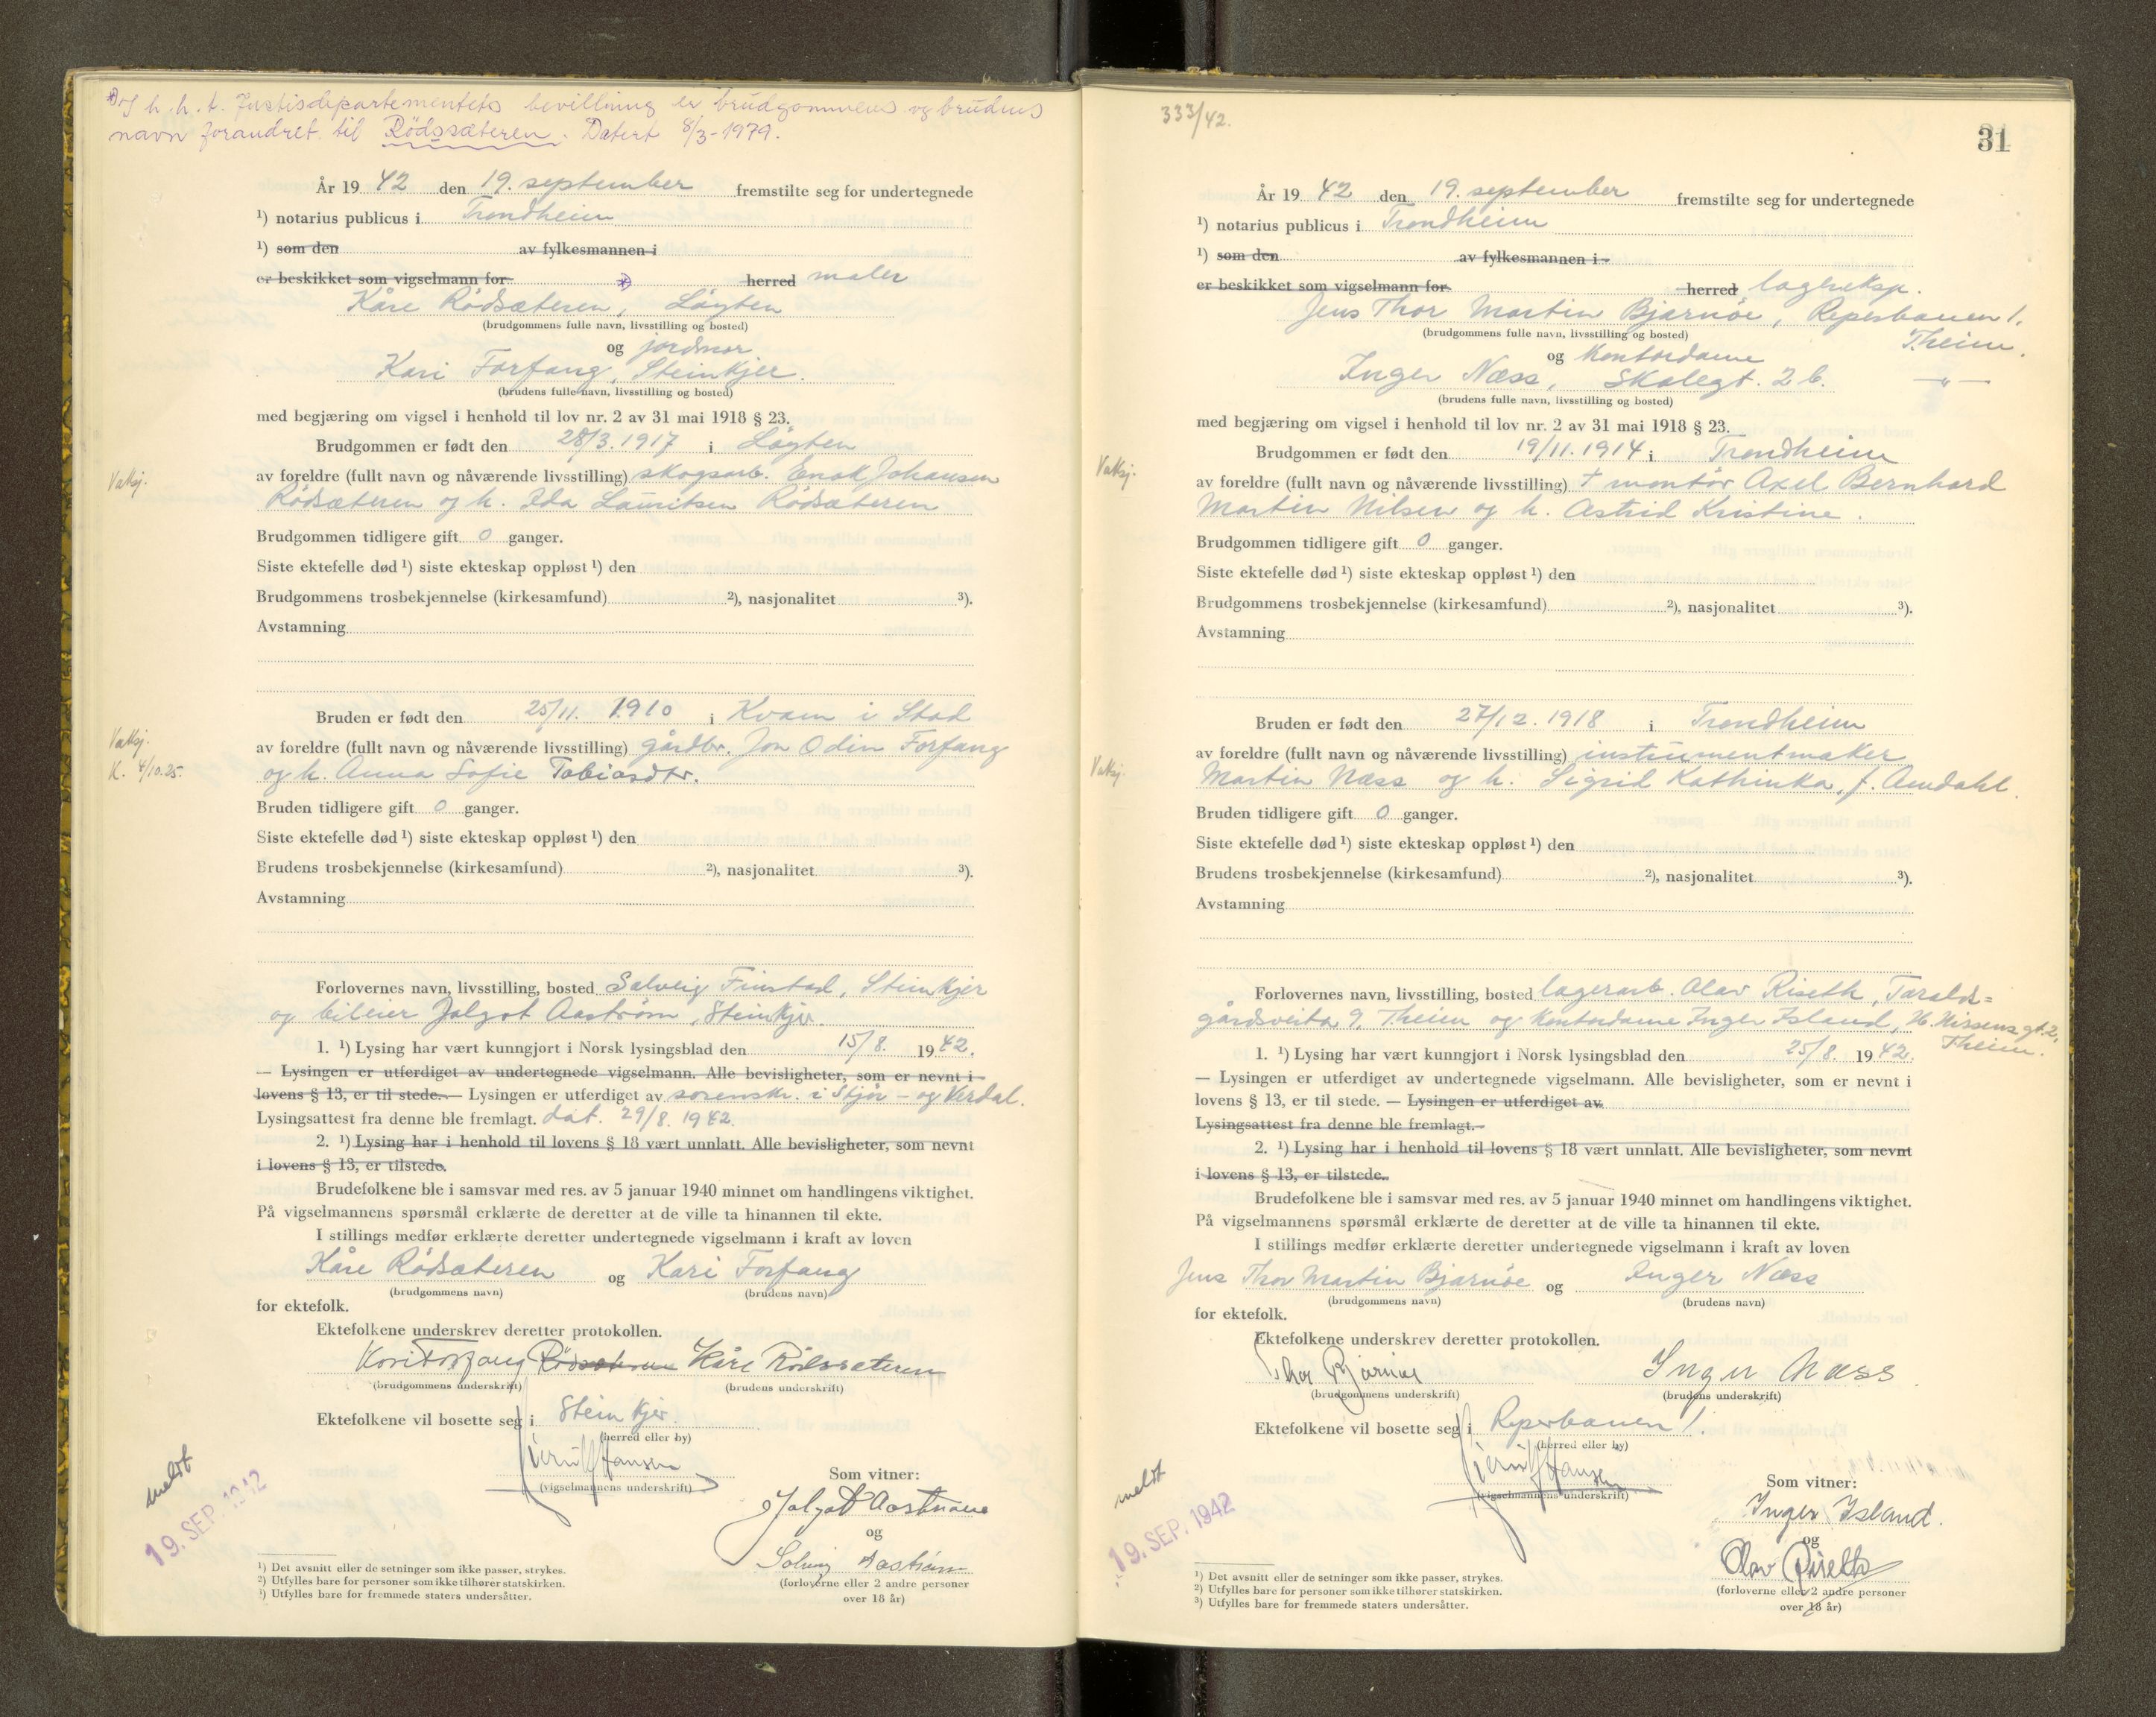 *) I h. h. t. Justisdepartementets bevillning er brudgommens og brudens
navn forandret til Rödssæteren. Datert 8/3-1979.
År 1942 den 19. september fremstilte seg for undertegnede
¹) notarius publicus i Trondheim
¹) som den av fylkesmannen i
er beskikket som vigselmann for *) herred maler
Kåre Rödsæteren, Löyten
(brudgommens fulle navn, livsstilling og bosted)
og jordmor
Kari Forfang, Steinkjer.
(brudens fulle navn, livsstilling og bosted)
med begjæring om vigsel i henhold til lov nr. 2 av 31 mai 1918 § 23.
Brudgommen er født den 28/3. 1917 i Löyten
Vaksj.
av foreldre (fullt navn og nåværende livsstilling) skogsarb. Enok Johansen
Rödsæteren og h. Ida Lauritsen Rödsæteren
Brudgommen tidligere gift 0 ganger.
Siste ektefelle død ¹) siste ekteskap oppløst ¹) den
Brudgommens trosbekjennelse (kirkesamfund) ²), nasjonalitet ³).
Avstamning
Bruden er født den 25/11. 1910 i Kvam i Stod
Vaksj.
av foreldre (fullt navn og nåværende livsstilling) gårdbr. Jon Odin Forfang
K. 4/10.25.
og h. Anna Sofie Tobiasdtr.
Bruden tidligere gift 0 ganger.
Siste ektefelle død ¹) siste ekteskap oppløst ¹) den
Brudens trosbekjennelse (kirkesamfund) ²), nasjonalitet ³).
Avstamning
Forlovernes navn, livsstilling, bosted Solveig Finstad, Steinkjer
og bileier Jalgot Aastrøm, Steinkjer.
1. ¹) Lysing har vært kunngjort i Norsk lysingsblad den 15/8. 1942.
— Lysingen er utferdiget av undertegnede vigselmann. Alle bevisligheter, som er nevnt i
lovens § 13, er til stede. — Lysingen er utferdiget av sorenskr. i Stjør- og Verdal.
Lysingsattest fra denne ble fremlagt. dat. 29/8. 1942.
2. ¹) Lysing har i henhold til lovens § 18 vært unnlatt. Alle bevisligheter, som nevnt
i lovens § 13, er tilstede.
Brudefolkene ble i samsvar med res. av 5 januar 1940 minnet om handlingens viktighet.
På vigselmannens spørsmål erklærte de deretter at de ville ta hinannen til ekte.
I stillings medfør erklærte deretter undertegnede vigselmann i kraft av loven
Kåre Rödsæteren og Kari Forfang
(brudgommens navn) (brudens navn)
for ektefolk.
Ektefolkene underskrev deretter protokollen.
Kari Forfang Rödsæteren Kåre Rödsæteren
(brudgommens underskrift) (brudens underskrift)
Ektefolkene vil bosette seg i Steinkjer.
(herred eller by)
Hansen
(vigselmannens underskrift)
Som vitner:
Jalgot Aastrøm
og
Solveig Aastrøm
(forloverne eller 2 andre personer
over 18 år)
meldt
19. SEP. 1942
¹) Det avsnitt eller de setninger som ikke passer, strykes.
²) Utfylles bare for personer som ikke tilhører statskirken.
³) Utfylles bare for fremmede staters undersåtter.
333/42.
31
År 1942 den 19. september fremstilte seg for undertegnede
¹) notarius publicus i Trondheim
¹) som den av fylkesmannen i
er beskikket som vigselmann for herred lagereksp.
Jens Thor Martin Bjarnøe, Reperbanen 1.
(brudgommens fulle navn, livsstilling og bosted) Theim.
og Kontordame
Inger Næss, Skolegt. 2 b. —„—
(brudens fulle navn, livsstilling og bosted)
med begjæring om vigsel i henhold til lov nr. 2 av 31 mai 1918 § 23.
Brudgommen er født den 19/11. 1914 i Trondheim
Vaksj.
av foreldre (fullt navn og nåværende livsstilling) † montör Axel Bernhard
Martin Nilsen og h. Astrid Kristine.
Brudgommen tidligere gift 0 ganger.
Siste ektefelle død ¹) siste ekteskap oppløst ¹) den
Brudgommens trosbekjennelse (kirkesamfund) ²), nasjonalitet ³).
Avstamning
Bruden er født den 27/12. 1918 i Trondheim
av foreldre (fullt navn og nåværende livsstilling) instrumentmaker
Vaksj.
Martin Næss og h. Sigrid Kathinka, f. Amdahl.
Bruden tidligere gift 0 ganger.
Siste ektefelle død ¹) siste ekteskap oppløst ¹) den
Brudens trosbekjennelse (kirkesamfund) ²), nasjonalitet ³).
Avstamning
Forlovernes navn, livsstilling, bosted lagerarb. Olav Riseth, Taralds=
gårdsveita 9, Theim og Kontordame Inger Island, H. Nissens gt. 2,
Theim.
1. ¹) Lysing har vært kunngjort i Norsk lysingsblad den 25/8. 1942.
— Lysingen er utferdiget av undertegnede vigselmann. Alle bevisligheter, som er nevnt i
lovens § 13, er til stede. — Lysingen er utferdiget av
Lysingsattest fra denne ble fremlagt.
2. ¹) Lysing har i henhold til lovens § 18 vært unnlatt. Alle bevisligheter, som nevnt
i lovens § 13, er tilstede.
Brudefolkene ble i samsvar med res. av 5 januar 1940 minnet om handlingens viktighet.
På vigselmannens spørsmål erklærte de deretter at de ville ta hinannen til ekte.
I stillings medfør erklærte deretter undertegnede vigselmann i kraft av loven
Jens Thor Martin Bjarnøe og Inger Næss
(brudgommens navn) (brudens navn)
for ektefolk.
Ektefolkene underskrev deretter protokollen.
Thor Bjarnøe Inger Næss
(brudgommens underskrift) (brudens underskrift)
Ektefolkene vil bosette seg i Reperbanen 1.
(herred eller by)
Hansen
(vigselmannens underskrift)
Som vitner:
Inger Island.
og
Olav Riseth
(forloverne eller 2 andre personer
over 18 år)
meldt
19. SEP. 1942
¹) Det avsnitt eller de setninger som ikke passer, strykes.
²) Utfylles bare for personer som ikke tilhører statskirken.
³) Utfylles bare for fremmede staters undersåtter.